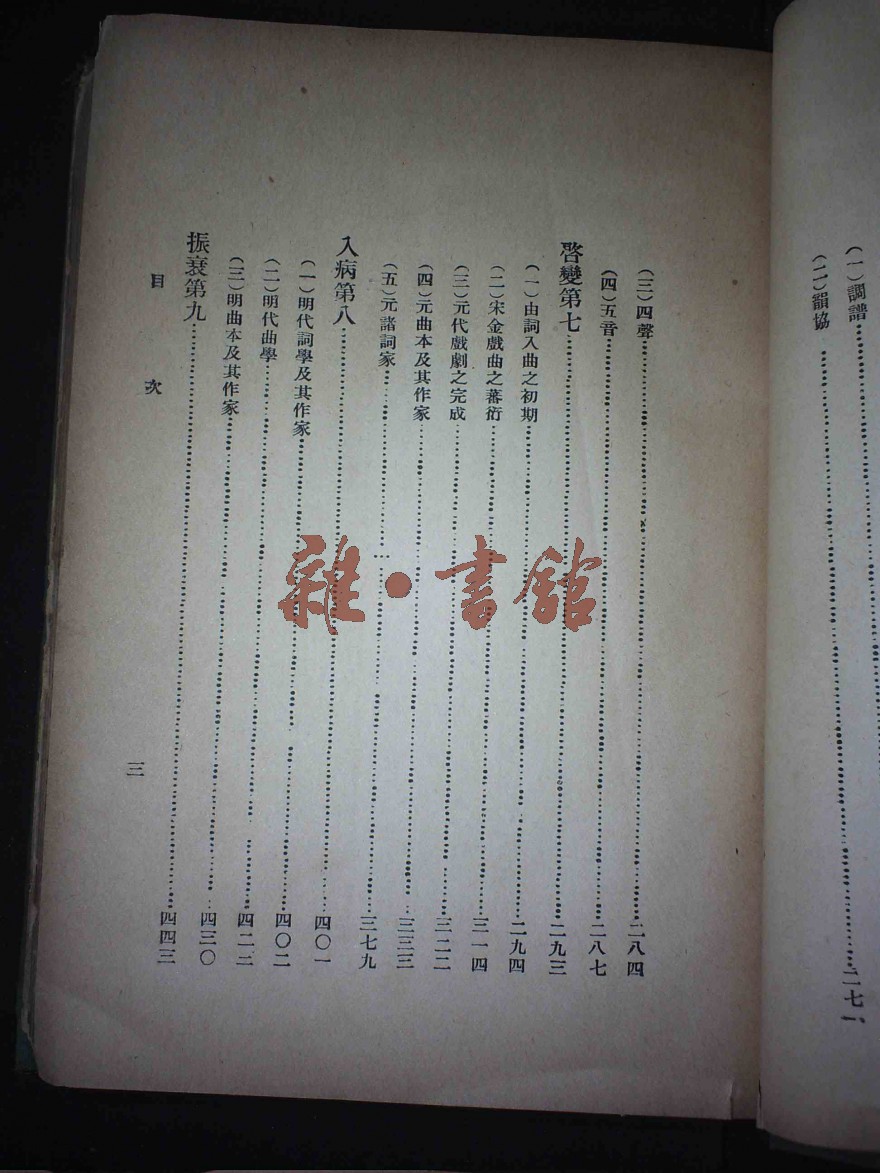 （一）調譜……二七一
（二）韻協……
（三）四聲……二八四
（四）五音……二八七
啓變第七……二九三
（一）由詞入曲之初期……二九四
（二）宋金戲曲之蕃衍……三一四
（三）元代戲劇之完成……三二二
（四）元曲本及其作家……三三三
（五）元諸詞家……三七九
入病第八……四〇一
（一）明代詞學及其作家……四〇二
（二）明代曲學……四二三
（三）明曲本及其作家……四三〇
振衰第九……四四三
目次
三
雜·書館